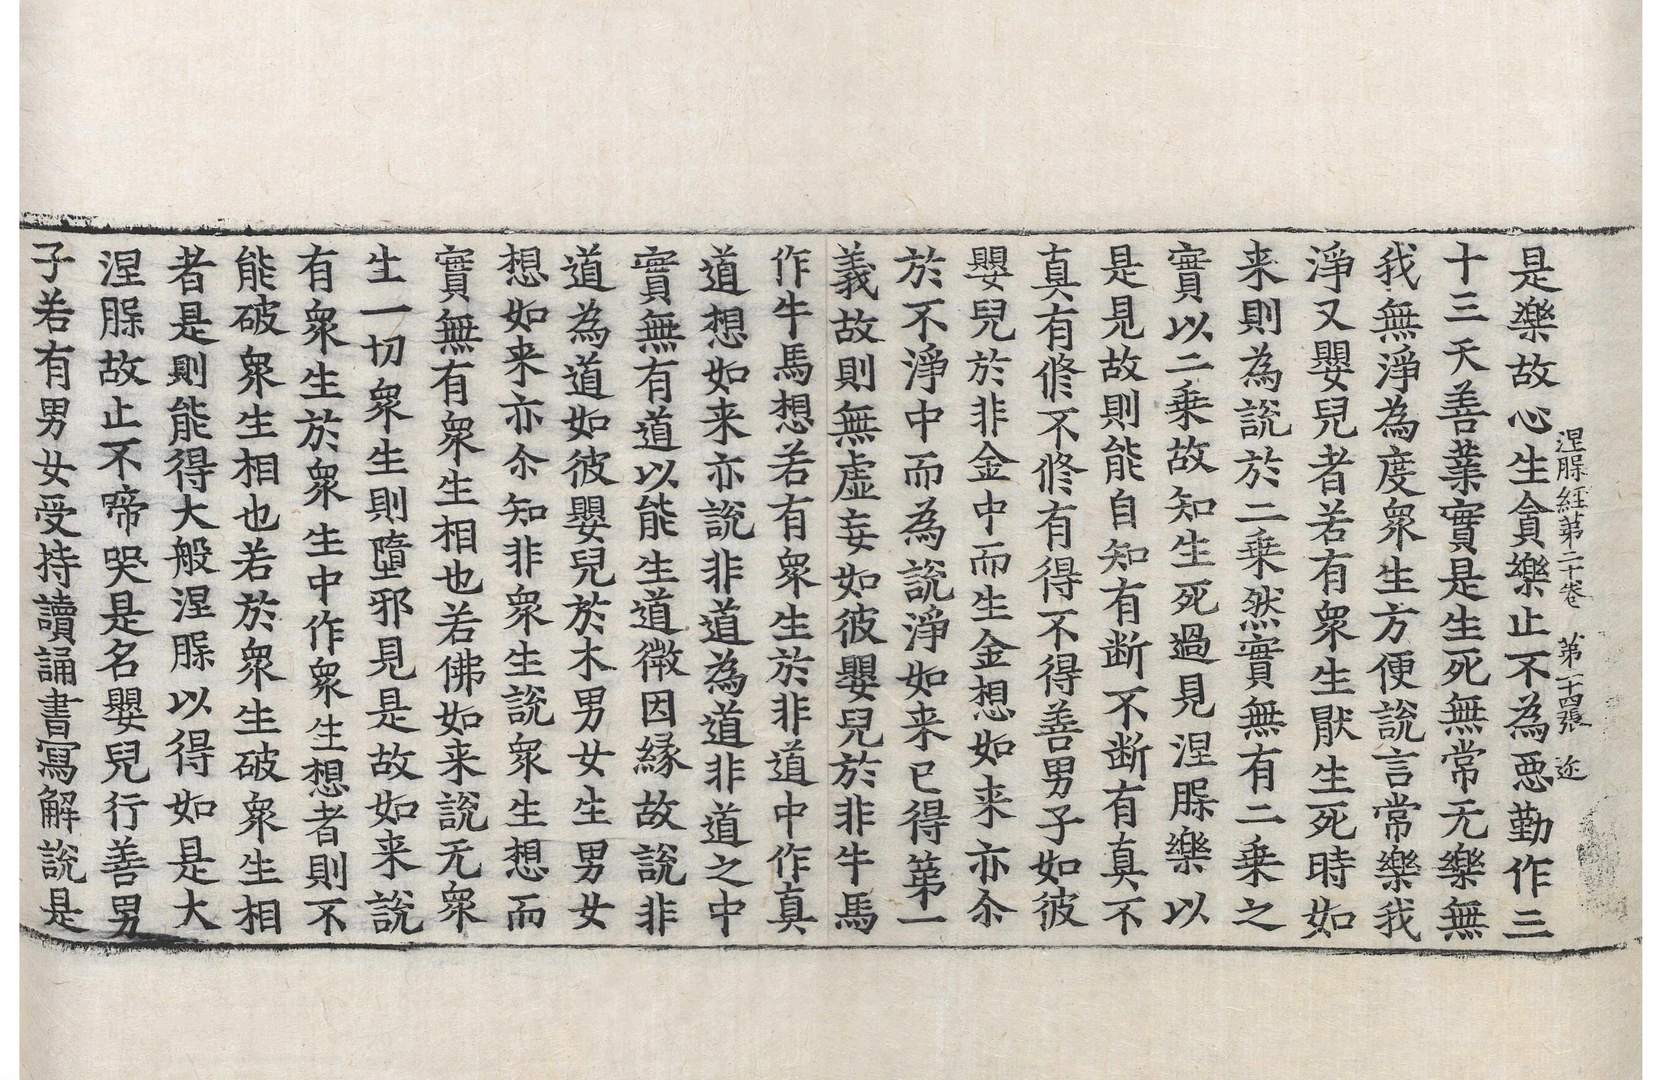 涅槃経第二十巻　第二十四張　迩
是樂故心生貪樂止不為惡勤作三
十三天善業實是生死無常无樂無
我無淨為度衆生方便說言常樂我
淨又嬰兒者若有衆生猒生死時如
来則為說於二乗然實無有二乗之
實以二乗故知生死過見涅槃樂以
是見故則能自知有断不断有真不
真有修不修有得不得善男子如彼
嬰兒於非金中而生金想如来亦尒
於不淨中而為說淨如来已得第一
義故則無虛妄如彼嬰兒於非牛馬
作牛馬想若有衆生於非道中作真
道想如来亦說非道為道非道之中
實無有道以能生道微因緣故說非
道為道如彼嬰兒於木男女生男女
想如来亦尒知非衆生說衆生想而
實無有衆生相也若佛如来說无衆
生一切衆生則墮邪見是故如来說
有衆生於衆生中作衆生想者則不
能破衆生相也若於衆生破衆生相
者是則能得大般涅槃以得如是大
涅槃故止不啼哭是名嬰兒行善男
子若有男女受持讀誦書寫解說是